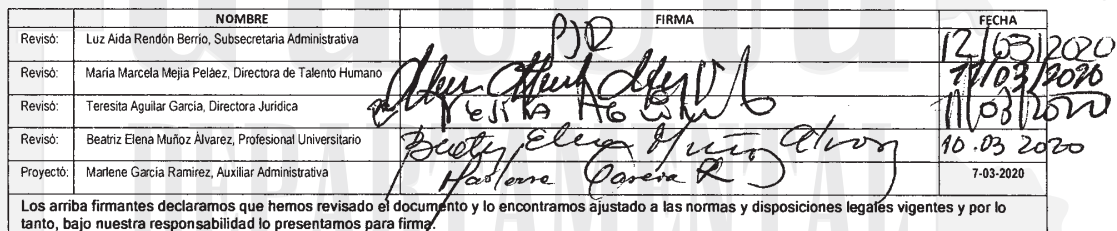 NOMBRE FIRMA FECHA
Revisó: Luz Aida Rendón Berrio, Subsecretaria Administrativa 12/03/2020
Revisó: Maria Marcela Mejia Peláez, Directora de Talento Humano 11/03/2020
Revisó: Teresita Aguilar Garcia, Directora Juridica Teresita 11/03/2020
Revisó: Beatriz Elena Muñoz Álvarez, Profesional Universitario Beatriz Elena Muñoz Alvarez 10.03 2020
Proyectó: Marlene Garcia Ramirez, Auxiliar Administrativa Marlene Garcia R 7-03-2020
Los arriba firmantes declaramos que hemos revisado el documento y lo encontramos ajustado a las normas y disposiciones legales vigentes y por lo
tanto, bajo nuestra responsabilidad lo presentamos para firma.